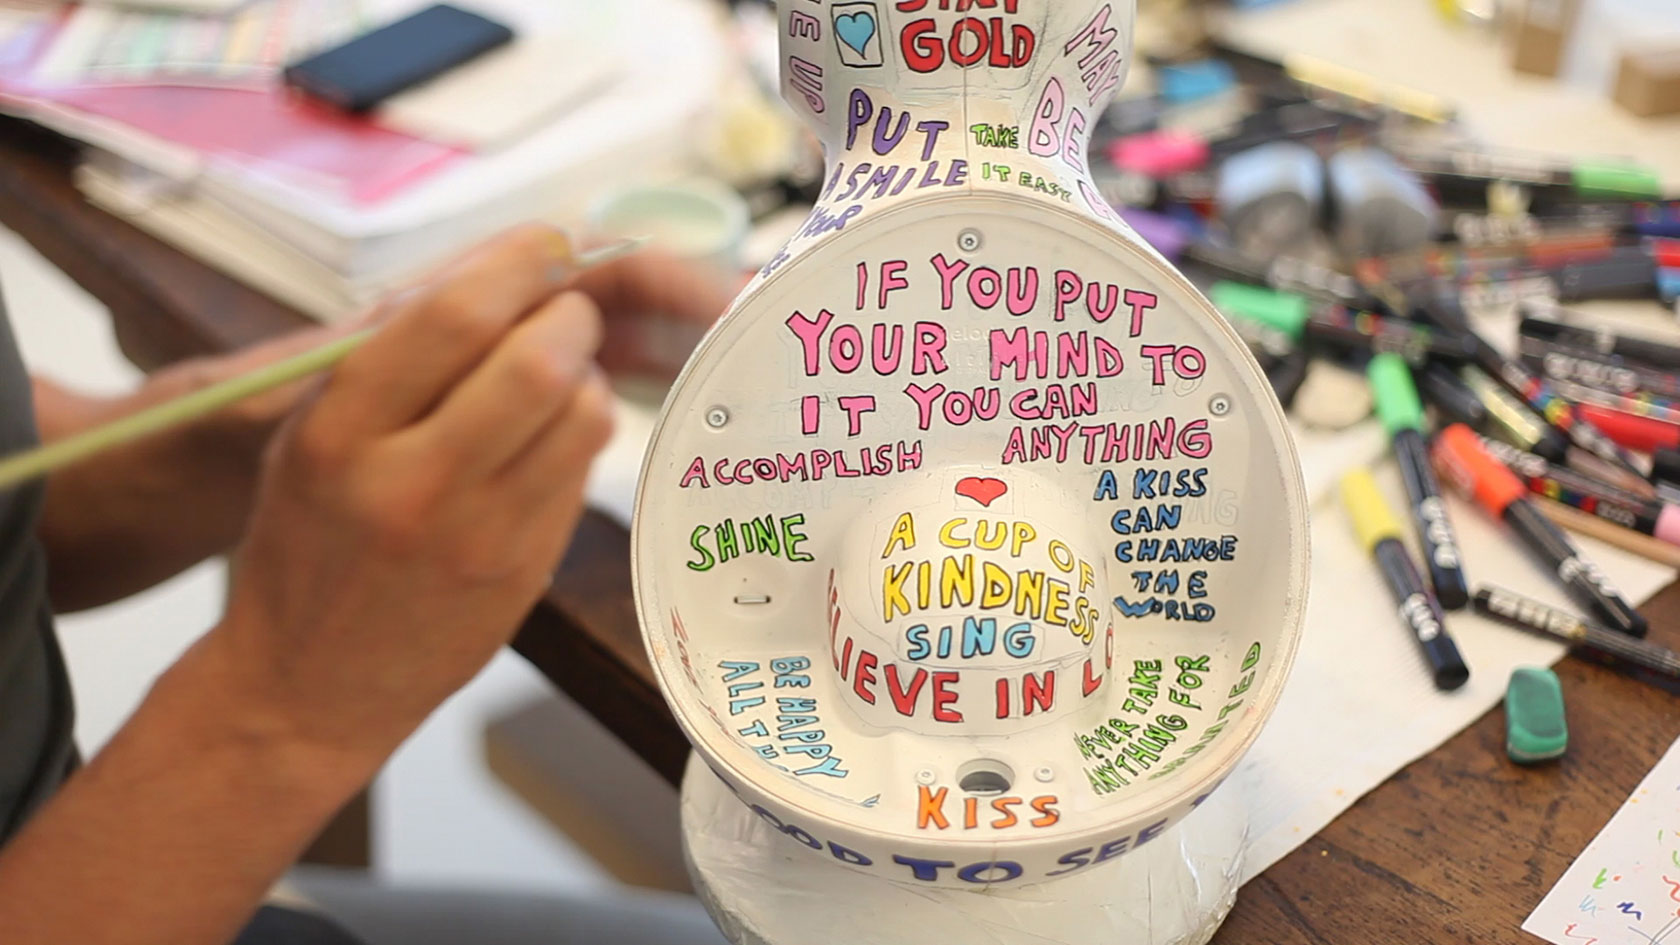 STAY
GOLD
UP
MAY
BE
PUT
A SMILE
TAKE
IT EASY
YOUR
IF YOU PUT
YOUR MIND TO
IT YOU CAN
ACCOMPLISH ANYTHING
A KISS
CAN
CHANGE
THE
WORLD
SHINE
A CUP OF
KINDNESS
SING
LIEVE IN LO
BE HAPPY
ALL TH
NEVER TAKE
ANYTHING FOR
KISS
OOD TO SEE